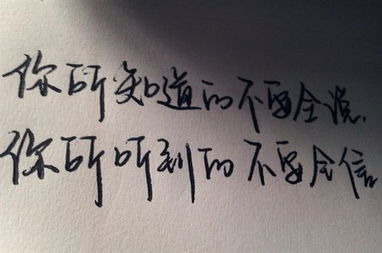 你所知道的不要全说.
你所听到的不要全信